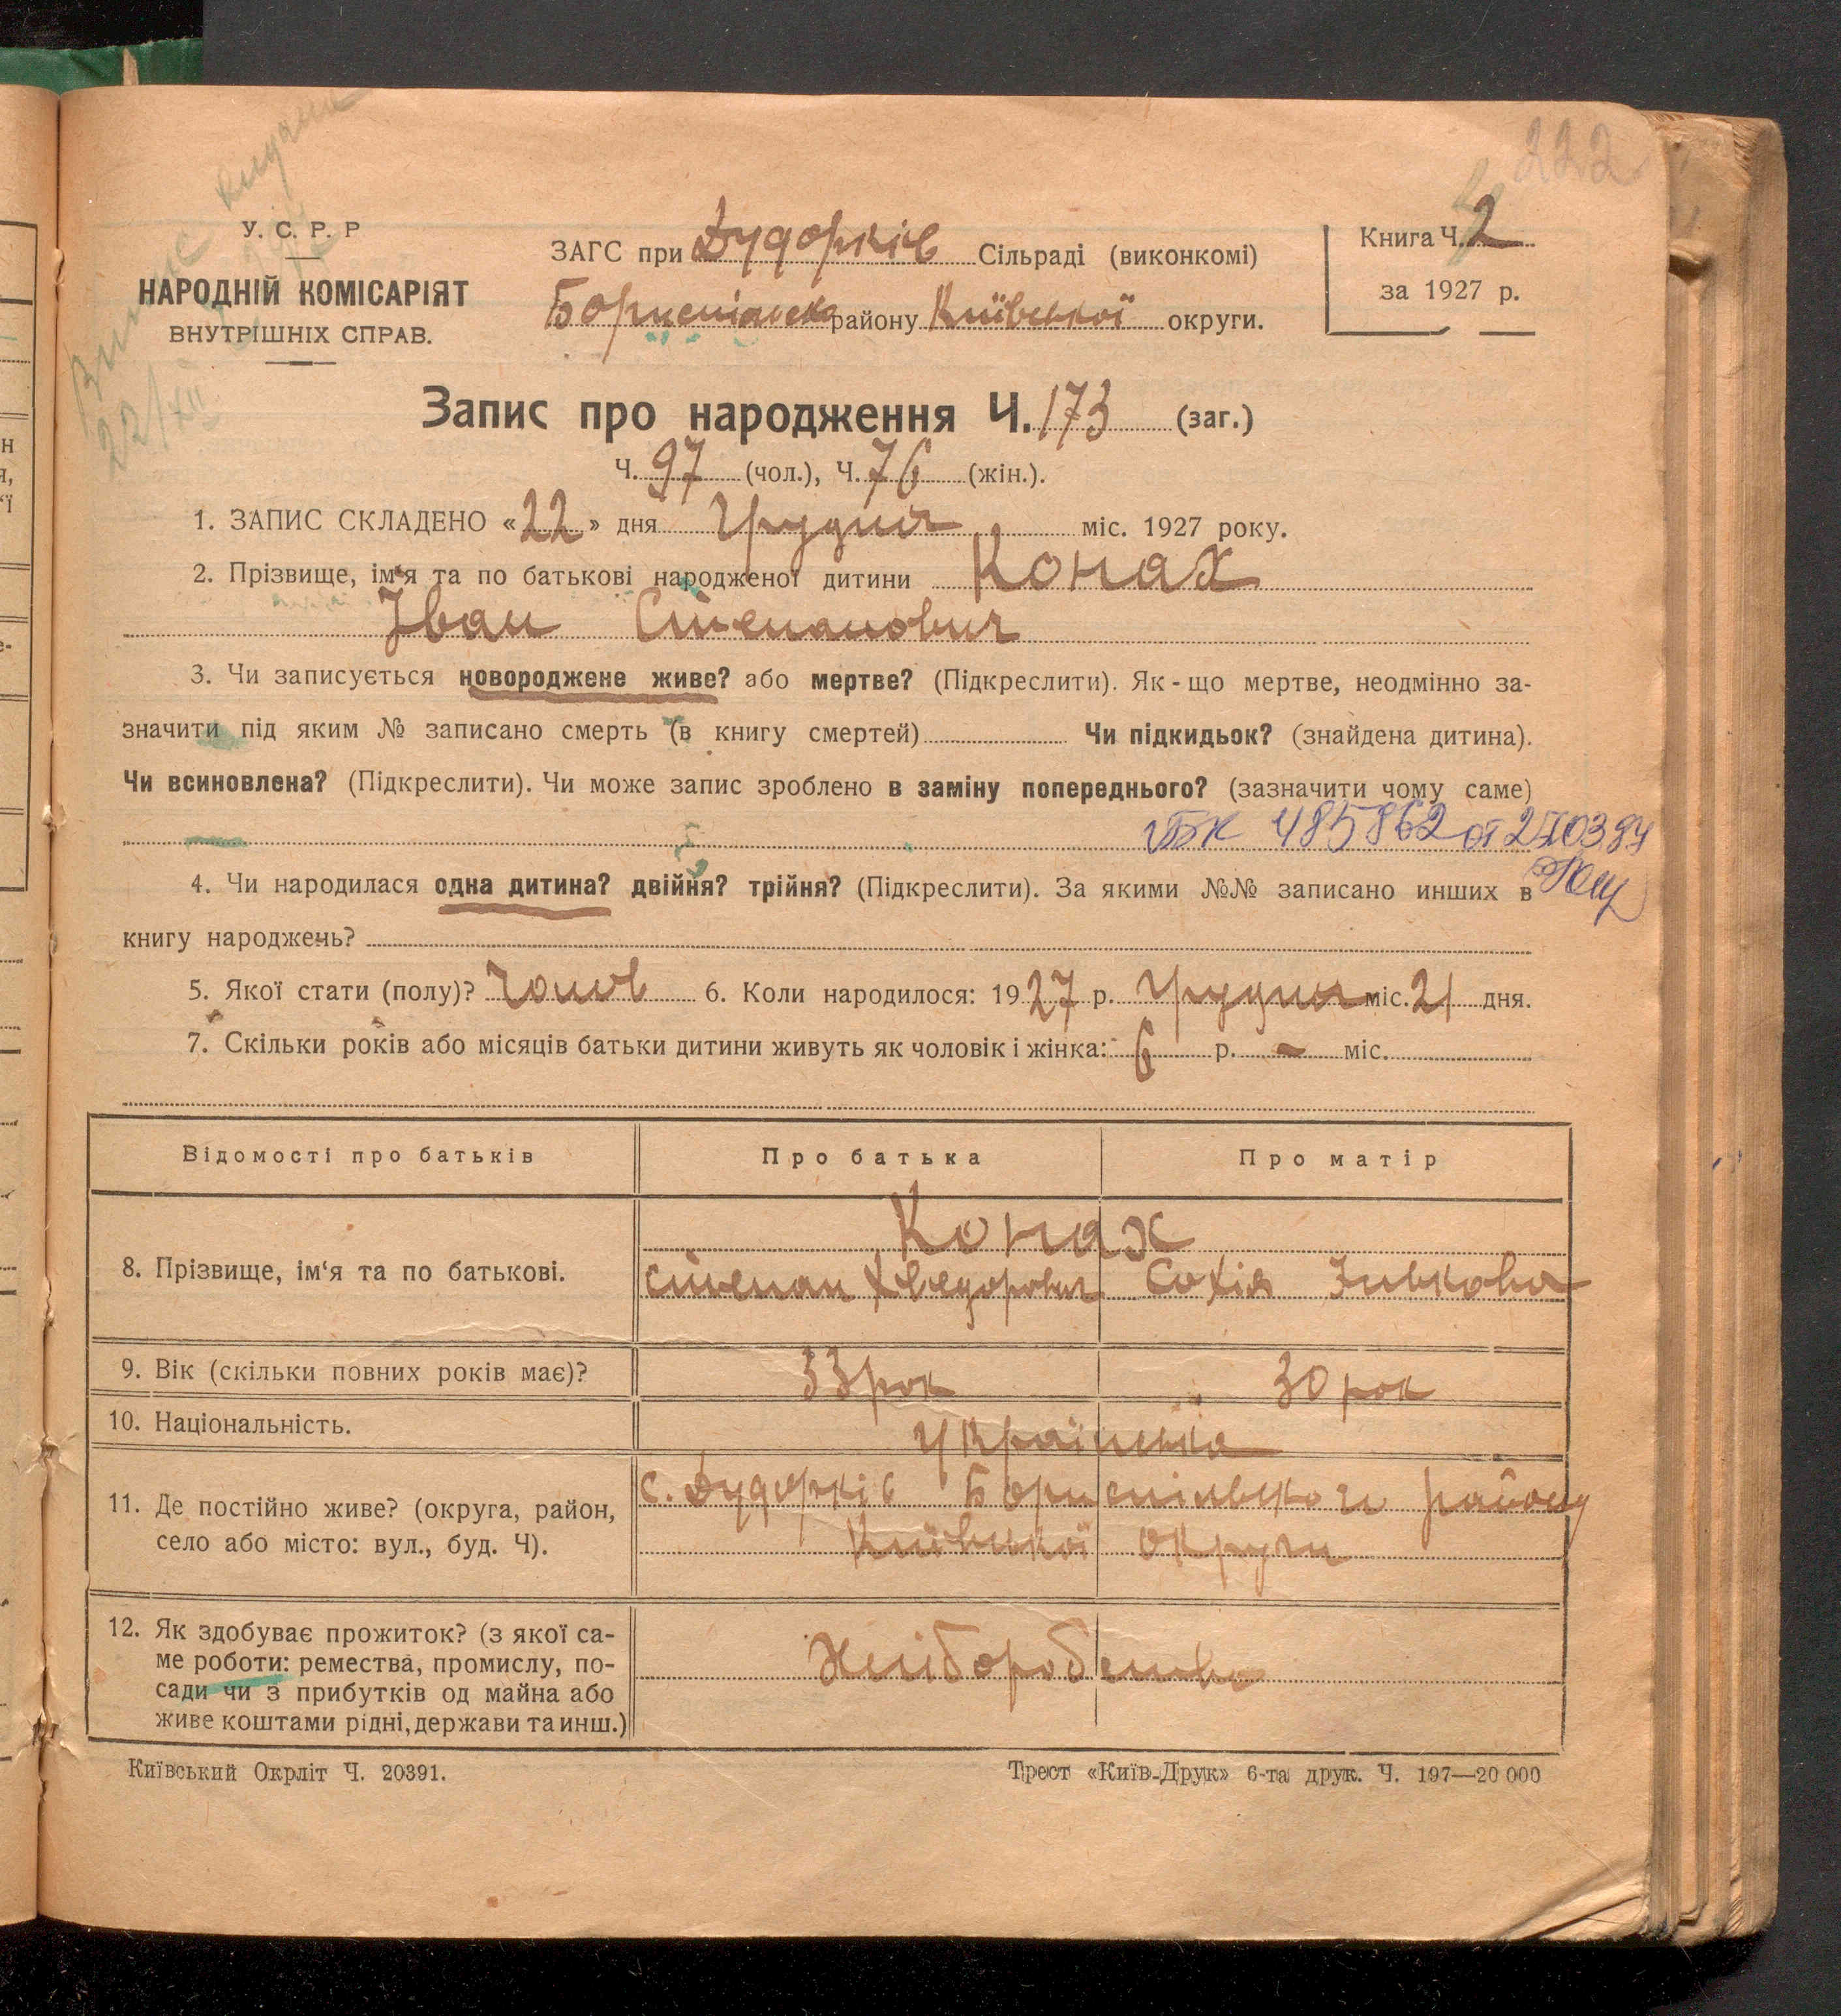 222
Виписс видана
22/XII
У. С. Р. Р
НАРОДНІЙ КОМІСАРІЯТ
ВНУТРІШНІХ СПРАВ.
ЗАГС при Дудорків Сільраді (виконкомі)
Бориспільско району Київської округи.
Книга Ч. 2
за 1927 р.
Запис про народження Ч. 173 (заг.)
Ч. 97 (чол.), Ч. 76 (жін.).
1. ЗАПИС СКЛАДЕНО «22» дня Грудня міс. 1927 року.
2. Прізвище, ім'я та по батькові народженої дитини Конах
Іван Степанович
3. Чи записується новороджене живе? або мертве? (Підкреслити). Як-що мертве, неодмінно за-
значити під яким № записано смерть (в книгу смертей) Чи підкидьок? (знайдена дитина).
Чи всиновлена? (Підкреслити). Чи може запис зроблено в заміну попереднього? (зазначити чому саме)
485862 от 270397
4. Чи народилася одна дитина? двійня? трійня? (Підкреслити). За якими №№ записано инших в
книгу народжень?
5. Якої стати (полу)? Чолов 6. Коли народилося: 1927 р. Грудня міс. 21 дня.
7. Скільки років або місяців батьки дитини живуть як чоловік і жінка: 6 р. - міс.
Відомості про батьків Про батька Про матір
Конах
8. Прізвище, ім'я та по батькові. Степан Хведорович Сохія
9. Вік (скільки повних років має)? 33 рок 30 рок
10. Національність. Українська
11. Де постійно живе? (округа, район, с. Дудорків Бориспільського району
село або місто: вул., буд. Ч). Київської округи
12. Як здобуває прожиток? (з якої са-
ме роботи: ремества, промислу, по- Хліборобство
сади чи з прибутків од майна або
живе коштами рідні, держави та инш.)
Київський Окрліт Ч. 20391. Трест «Київ-Друк» 6-та друк. Ч. 197—20 000